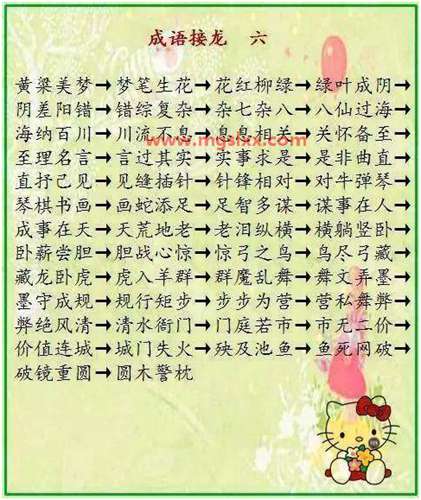 成语接龙 六
黄粱美梦→梦笔生花→花红柳绿→绿叶成阴→
阴差阳错→错综复杂→杂七杂八→八仙过海→
海纳百川→川流不息→息息相关→关怀备至→
www.mgslxx.com
至理名言→言过其实→实事求是→是非曲直→
直抒己见→见缝插针→针锋相对→对牛弹琴→
琴棋书画→画蛇添足→足智多谋→谋事在人→
成事在天→天荒地老→老泪纵横→横躺竖卧→
卧薪尝胆→胆战心惊→惊弓之鸟→鸟尽弓藏→
藏龙卧虎→虎入羊群→群魔乱舞→舞文弄墨→
墨守成规→规行矩步→步步为营→营私舞弊→
弊绝风清→清水衙门→门庭若市→市无二价→
价值连城→城门失火→殃及池鱼→鱼死网破→
破镜重圆→圆木警枕